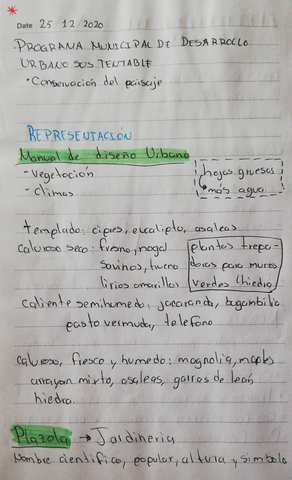 Date 25 / 12 / 2020
PROGRAMA MUNICIPAL DE DESARROLLO
URBANO SUSTENTABLE
• Conservación del paisaje
REPRESENTACIÓN
Manual de diseño Urbano
- Vegetación
- Climas
hojas gruesas
→ más agua
templado: cipres, eucalipto, asaleas
caluroso seco: fresno, nogal
savinos, trueno
lirios amarillos
plantas trepa-
doras para muros
verdes (hiedra)
caliente semihumedo, jacaranda, bugambilia
pasto vermuda, telefono
caluroso, fresco y humedo: magnolia, maples
arrayan mixto, asaleas, garras de león,
hiedra.
Plazola → Jardineria
Nombre cientifico, popular, altura y simbolo